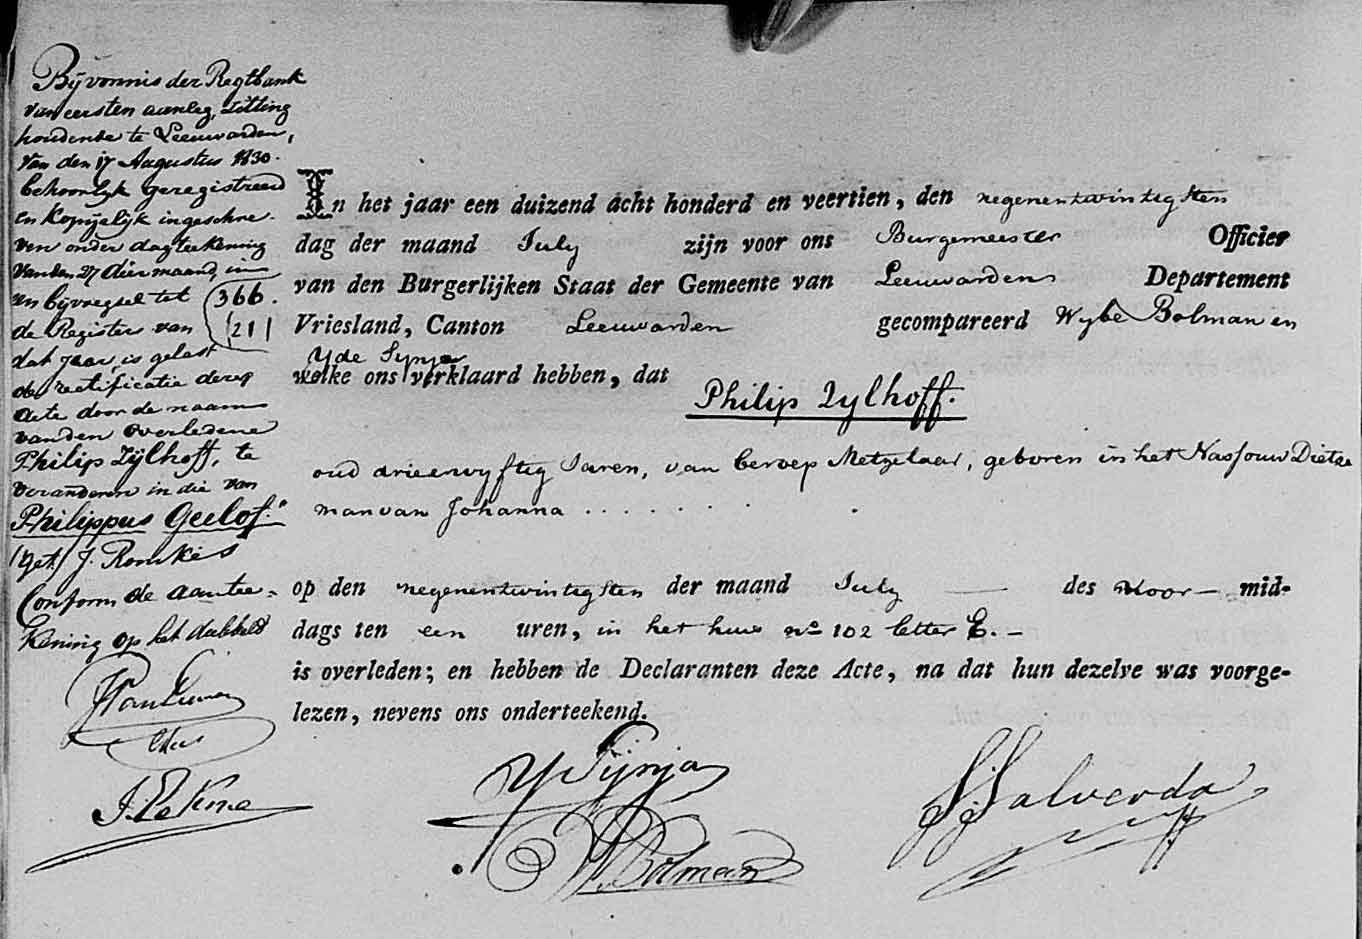 Bij vonnis der Regtbank
van eersten aanleg, zitting
houdende te Leeuwarden,
van den 17 Augustus 1830.
behoorlijk geregistreerd
en kopijelijk ingeschre-
ven onder dagteekening
van den 27 dier maand, in
een bijvoegsel tot
de Registers van
dat jaar, is gelast
de rectificatie dezer
acte door de naam
van den overledene
Philip Zijlhoff, te
veranderen in die van
Philippus Geelof."
(get) J. Romkes
Conform de aantee-
kening op het dubbeld
J. Telting
366.
121
In het jaar een duizend acht honderd en veertien, den negenentwintigsten
dag der maand July zijn voor ons Burgemeester Officier
van den Burgerlijken Staat der Gemeente van Leeuwarden Departement
Vriesland, Canton Leeuwarden gecompareerd Wybe Bolman en
Yde Sijnja
welke ons verklaard hebben, dat
Philip Zylhoff.
oud drieenvyftig Jaren, van beroep Metzelaar, geboren in het Nassouw Dietze
man van Johanna . . . . . . .
op den negenentwintigsten der maand July — des voor- mid-
dags ten een uren, in het huis no 102 letter E. -
is overleden; en hebben de Declaranten deze Acte, na dat hun dezelve was voorge-
lezen, nevens ons onderteekend.
Y Sijnja
W Bolman
S. Salverda